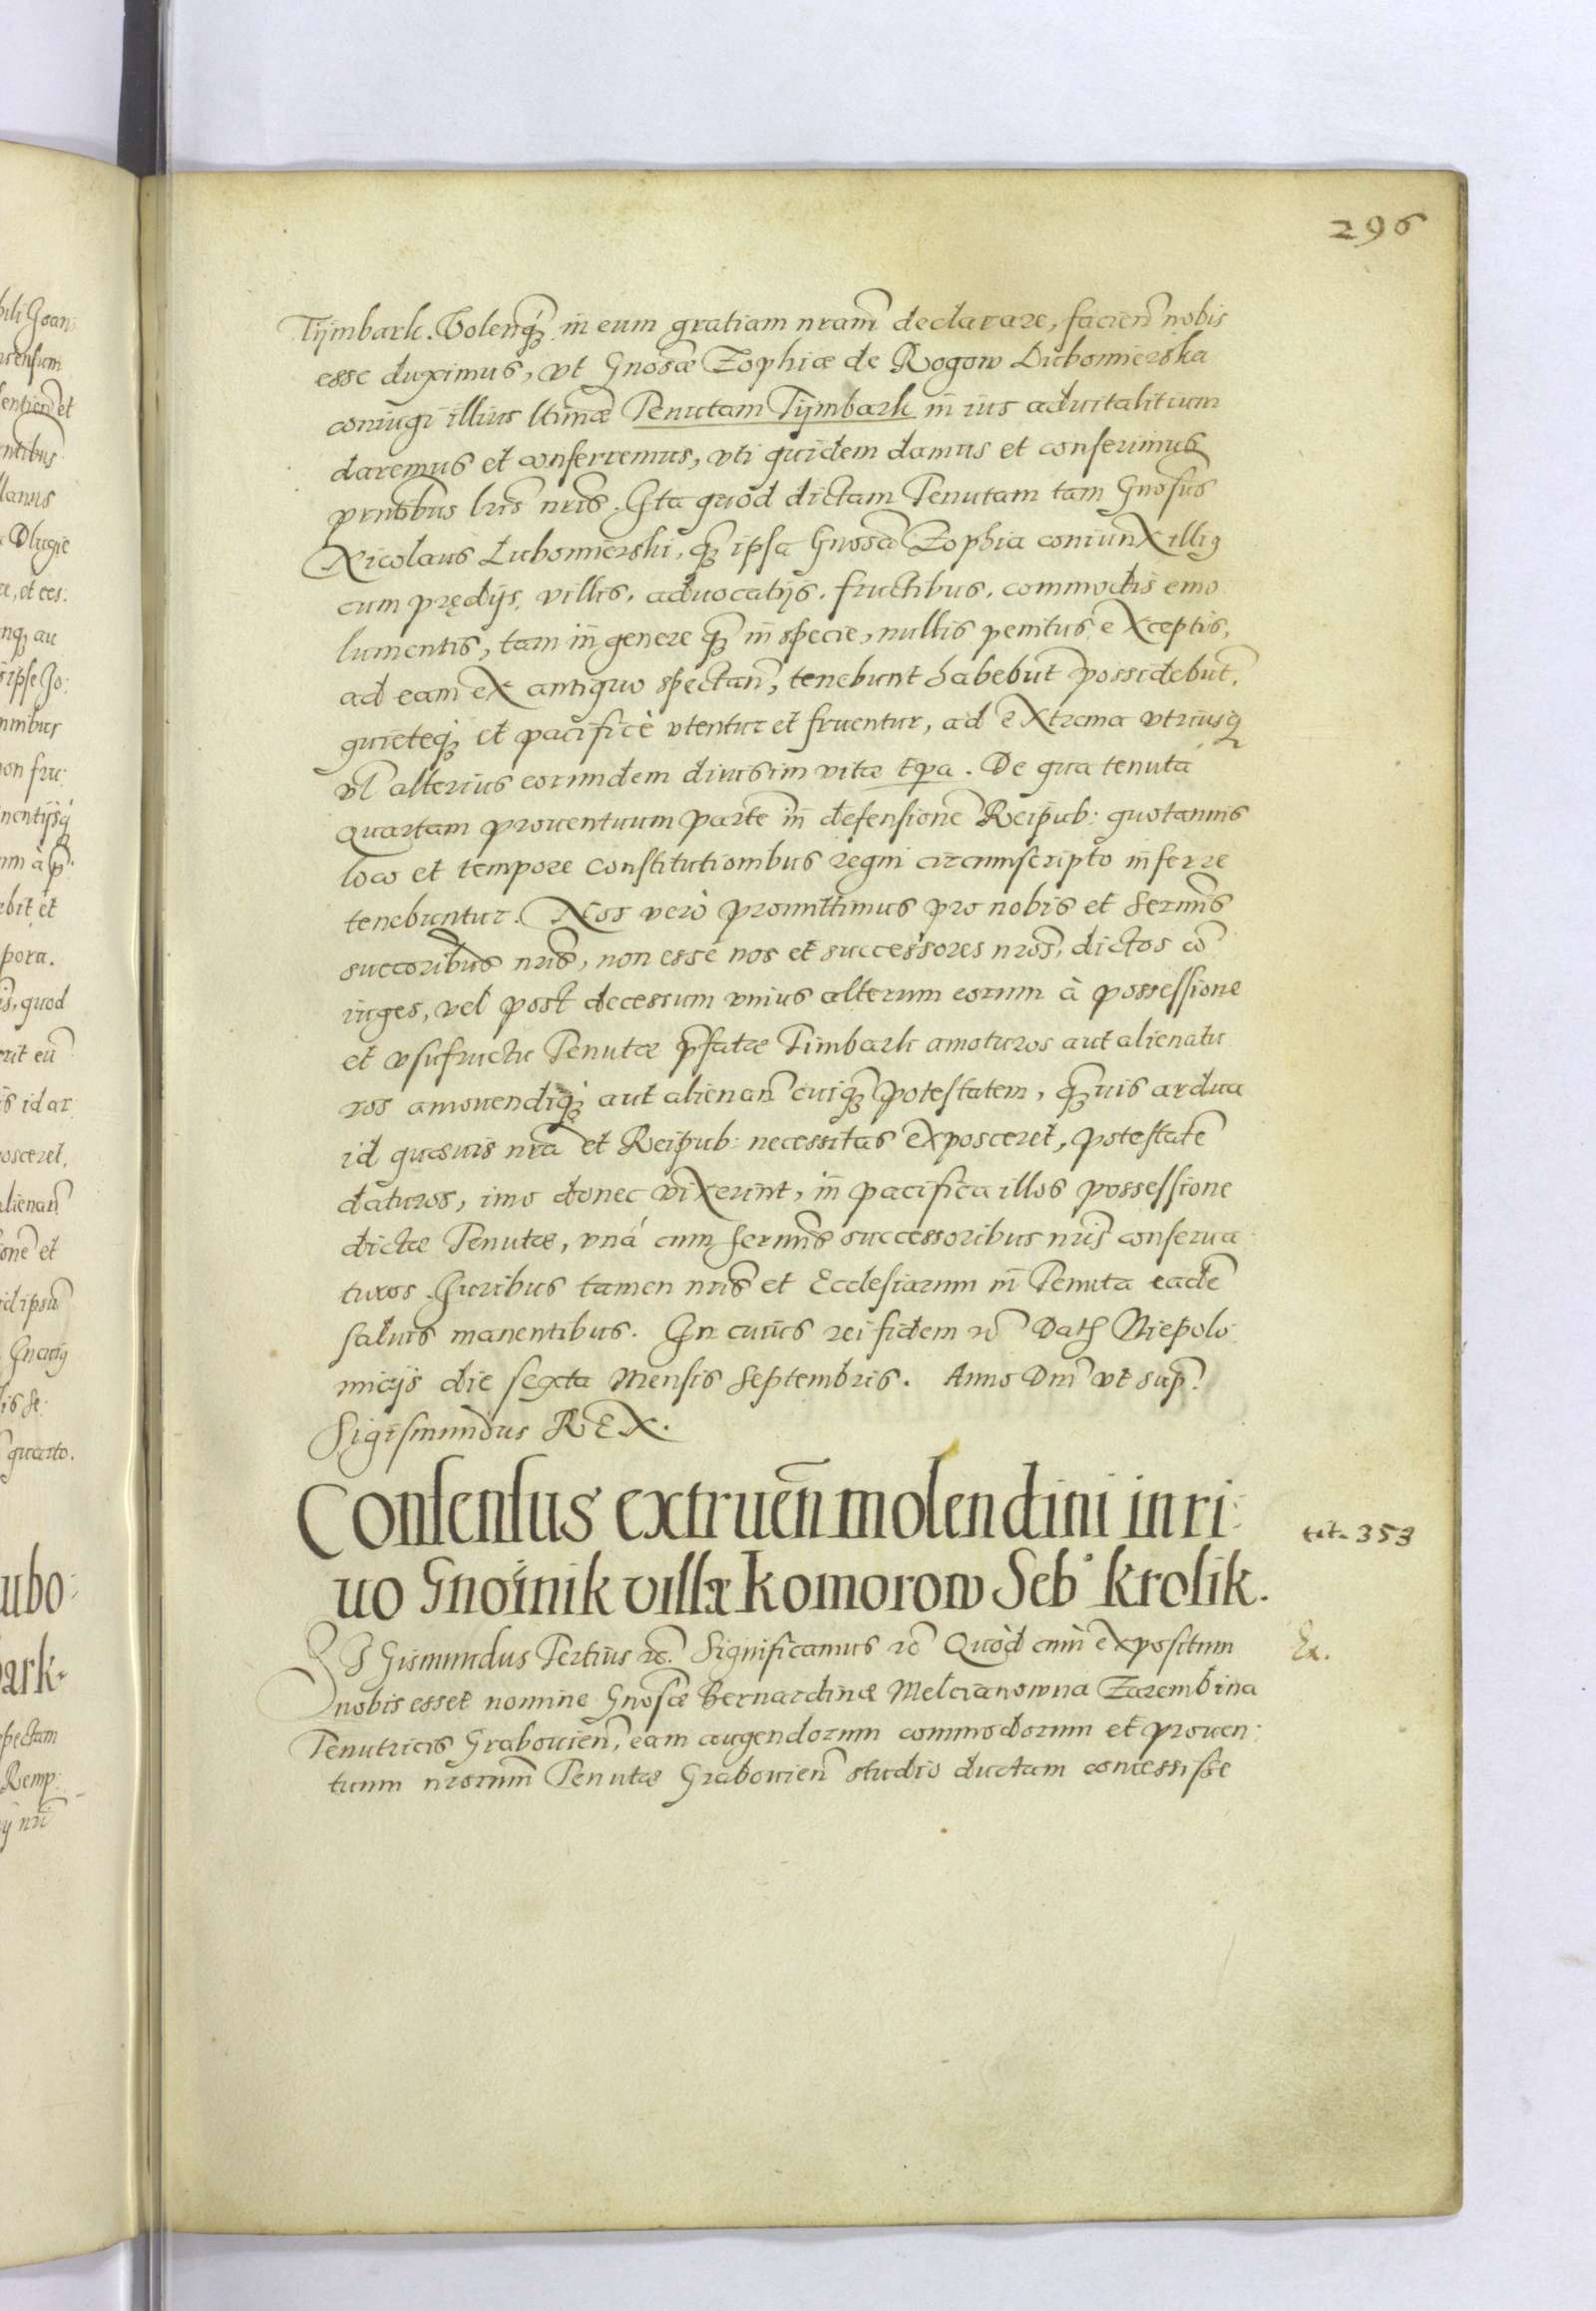 296
Tymbark. Volenq́ꝫ in eum gratiam nram̃ declarare, facien̄ nobis
esse duximus, vt Gnosæ Zophiæ de Rogow Lubomierska
coniugi illius ltimæ Tenutam Tymbark in ius aduitalitium
daremus et conferremus, vti quidem damus et conferimus
prñtibus lris nris. Ita quod dictam Tenutam tam Gnosus
Nicolaus Lubomierski, qꝫ ipsa Gnosa Zophia coniunx illiꝰ
cum prędijs, villis, aduocatijs, fructibus, commodis emo
lumentis, tam in genere qꝫ in specie, nullis penitus exceptis,
ad eam ex antiquo spectan̄, tenebunt habebūt possidebūt,
quieteqꝫ et pacificè vtentur et fruentur, ad extrema vtriusqꝫ
vl̃ alterius eorundem diuisim vitæ tpa. De qua tenuta
quartam prouentuum partē in defensionē Reipub: quotannis
loco et tempore constitutionibus regni circumscripto inferre
tenebuntur. Nos verò promittimus pro nobis et sermis̃
succoribus nris̃, non esse nos et successores nros̃, dictos cō
iuges, vel post decessum vnius alterum eorum à possessione
et vsufructu Tenutæ p̄fatæ Timbark amoturos aut alienatu
ros amouendiqꝫ aut alienan̄ cuiqꝫ potestatem, qꝫuis ardua
id quæuis nrã et Reipub: necessitas exposceret, potestatē
daturos, imo donec vixerint, in pacifica illos possessione
dictæ Tenutæ, vná cum sermis̃ successoribus nris̃ conserua
turos. Iuribus tamen nris̃ et Ecclesiarum in Tenuta eadē
saluis manentibus. In cuius rei fidem rc̄ Dat̃ Niepolo
micijs die sexta Mensis Septembris. Anno Dni̅ vt sup̃.
Sigismundus REX.
Consensus extruen̄ molendini in ri:
uo Gnoinik villæ Komorow Seb° Krolik.
tit. 353
SIGismundus Tertius rc̄. Significamus rc̄ Quòd cum expositum
Ex.
nobis esset nomine Gnosæ Bernardinæ Melcianowna Zarembina
Tenutricis Grabouien̄, eam augendorum commodorum et prouen:
tuum nrorum̃ Tenutæ Grabouien̄ studio ductam concessisse